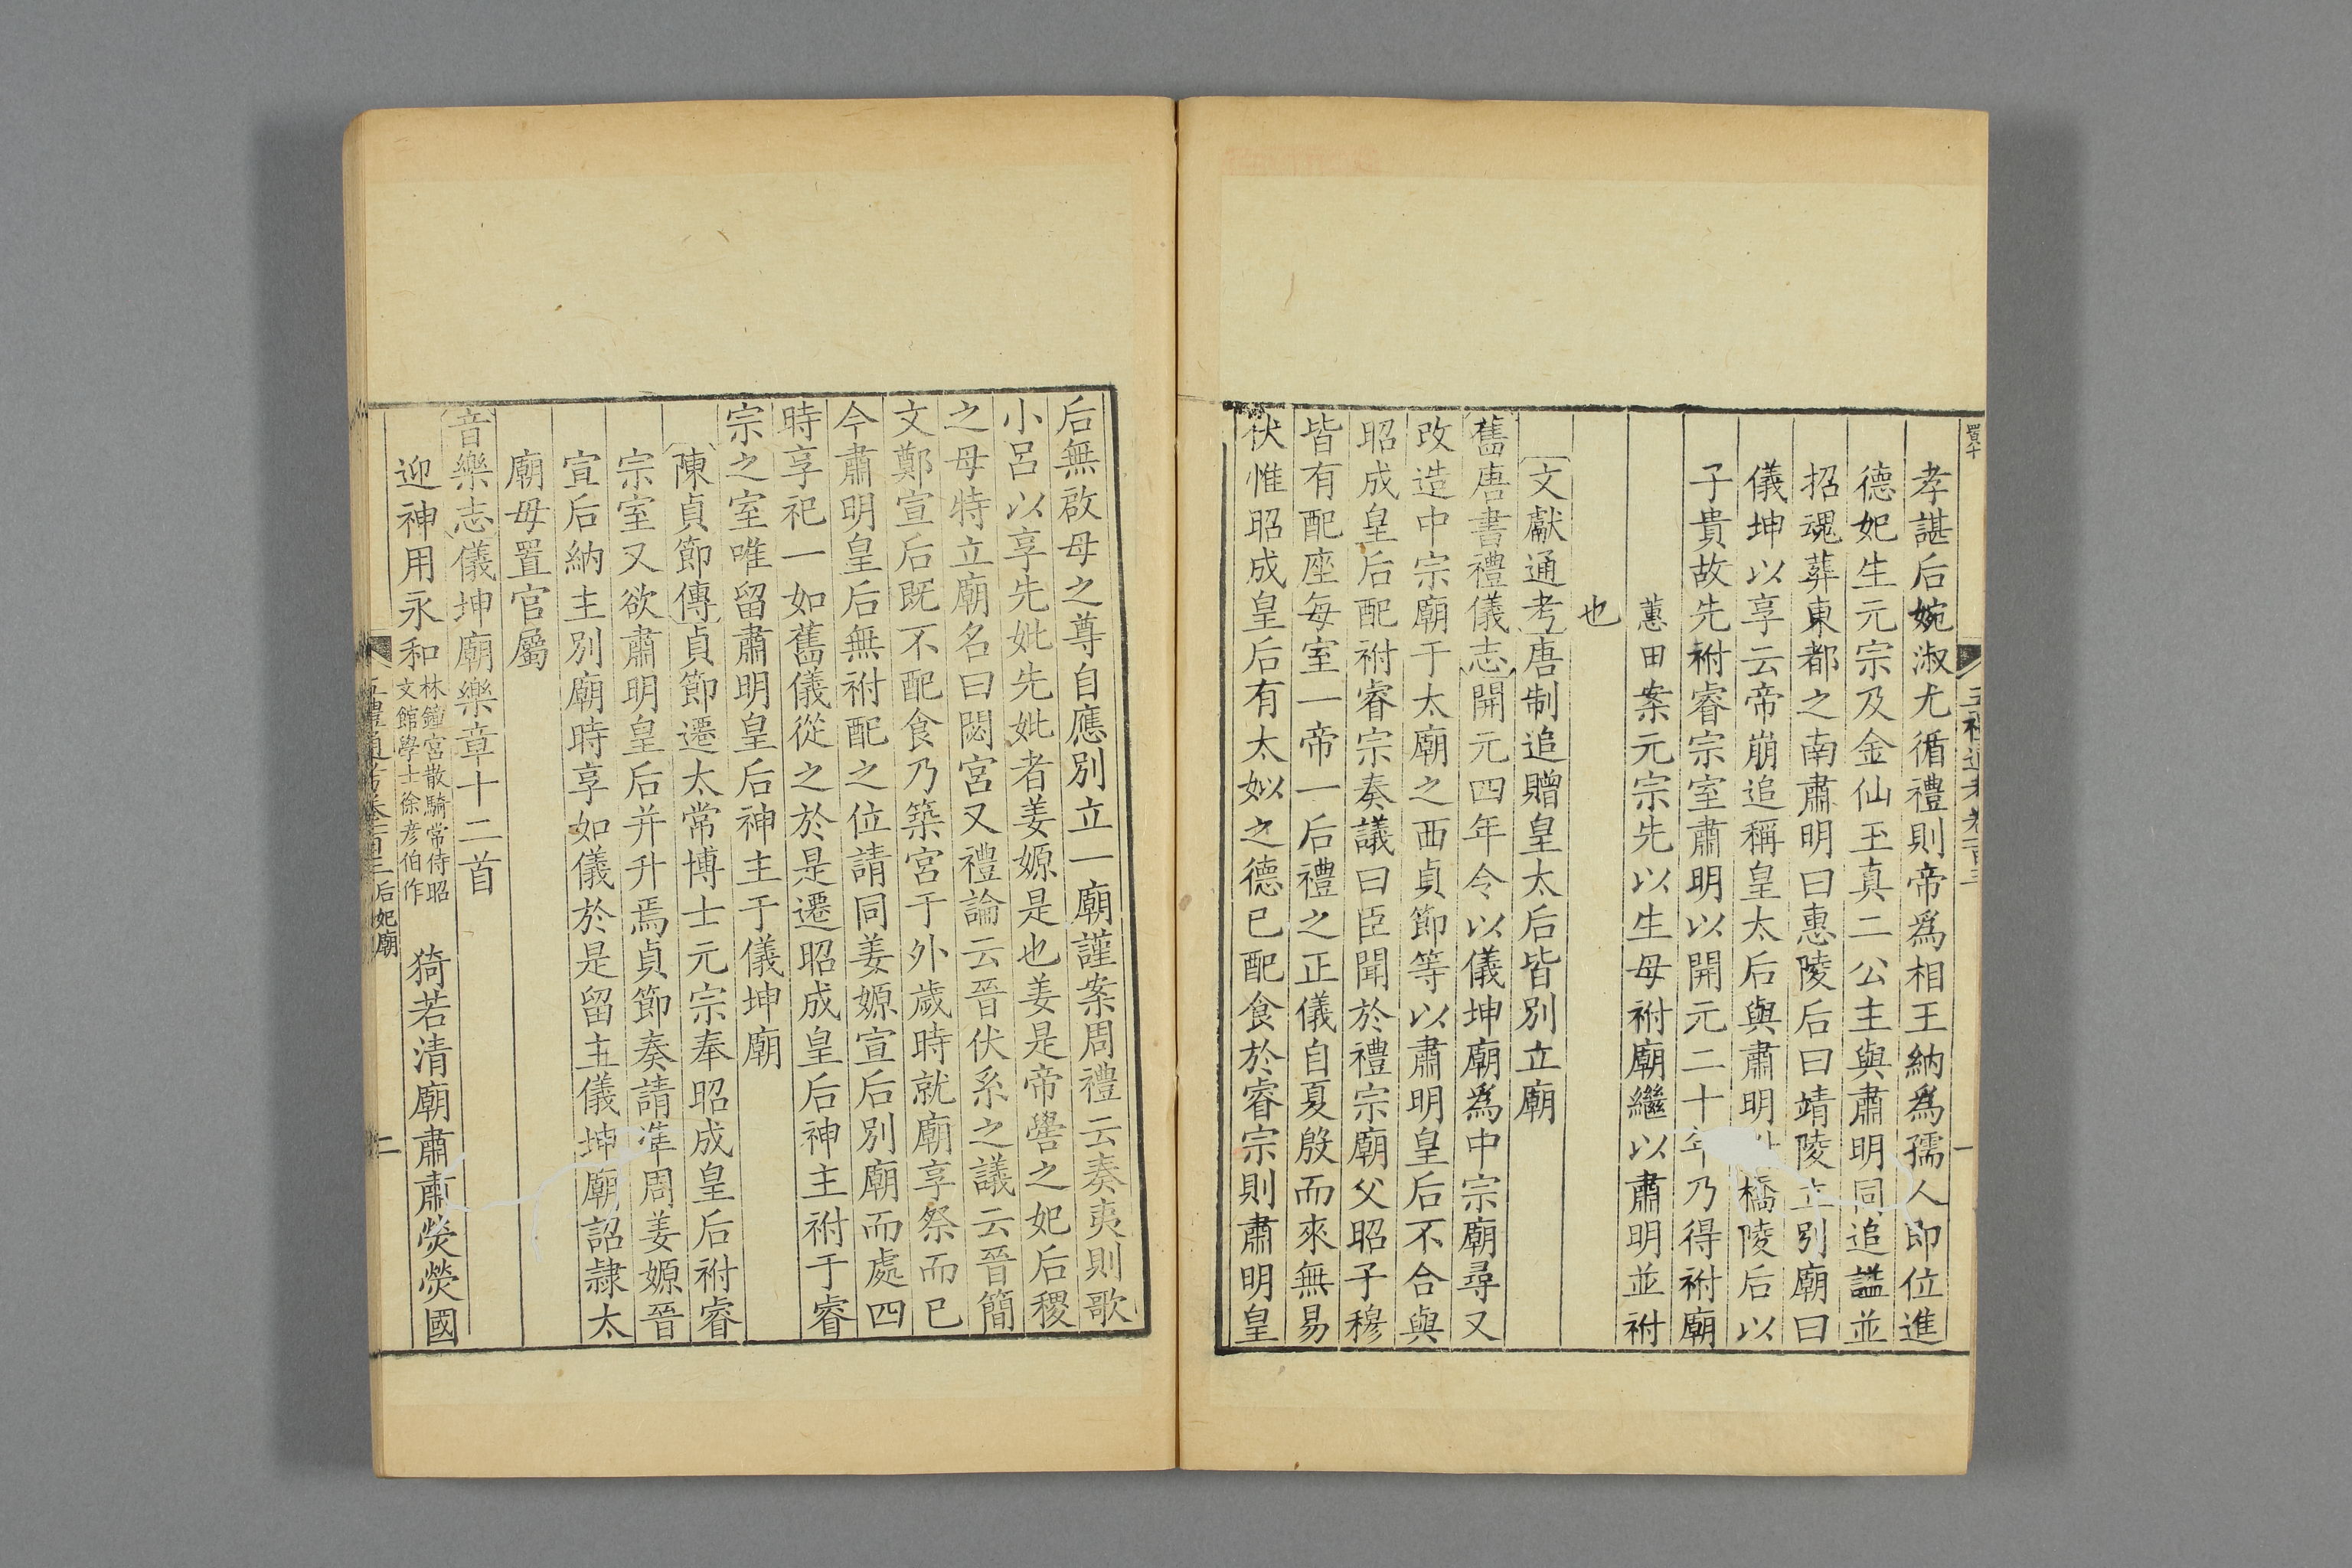 孝諶后婉淑尤循禮則帝爲相王納爲孺人即位進
德妃生元宗及金仙玉真二公主與肅明同追諡並
招魂葬東都之南肅明曰惠陵后曰靖陵立別廟曰
儀坤以享云帝崩追稱皇太后與肅明祔橋陵后以
子貴故先祔睿宗室肅明以開元二十年乃得祔廟
蕙田案元宗先以生母祔廟繼以肅明並祔
也
文獻通考唐制追贈皇太后皆別立廟
舊唐書禮儀志開元四年令以儀坤廟爲中宗廟尋又
改造中宗廟于太廟之西貞節等以肅明皇后不合與
昭成皇后配祔睿宗奏議曰臣聞於禮宗廟父昭子穆
皆有配座每室一帝一后禮之正儀自夏殷而來無易
伏惟昭成皇后有太姒之德已配食於睿宗則肅明皇
后無啟母之尊自應別立一廟謹案周禮云奏夷則歌
小呂以享先妣先妣者姜嫄是也姜是帝嚳之妃后稷
之母特立廟名曰閟宮又禮論云晉伏系之議云晉簡
文鄭宣后既不配食乃築宮于外歲時就廟享祭而已
今肅明皇后無祔配之位請同姜嫄宣后別廟而處四
時享祀一如舊儀從之於是遷昭成皇后神主祔于睿
宗之室唯留肅明皇后神主于儀坤廟
陳貞節傳貞節遷太常博士元宗奉昭成皇后祔睿
宗室又欲肅明皇后并升焉貞節奏請準周姜嫄晉
宣后納主別廟時享如儀於是留主儀坤廟詔隸太
廟毋置官屬
音樂志儀坤廟樂章十二首
迎神用永和林鐘宮散騎常侍昭文館學士徐彥伯作 猗若清廟肅肅熒熒國
五禮通考卷一百三 后妃廟 二